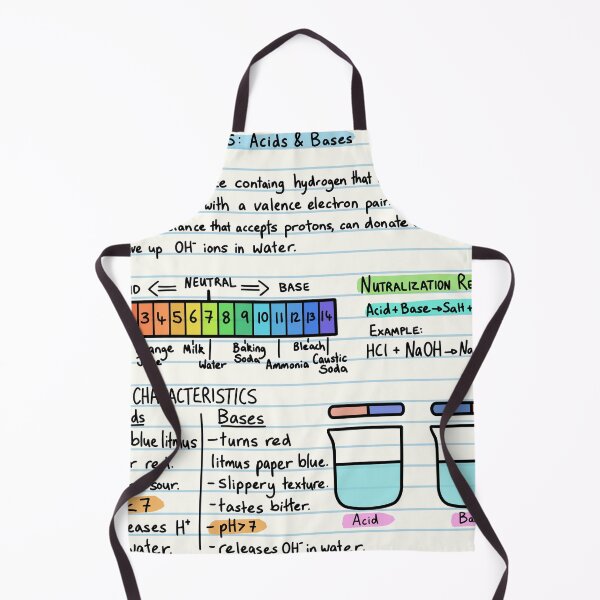 S: Acids & Bases
containg hydrogen that
with a valence electron pair.
that accepts protons, can donate
up OH⁻ ions in water.
<== NEUTRAL ==> BASE
3 4 5 6 7 8 9 10 11 12 13 14
Milk
Water
Baking Soda
Ammonia
Bleach
Caustic Soda
NUTRALIZATION RE
Acid + Base → Salt +
EXAMPLE:
HCl + NaOH → Na
CHARACTERISTICS
ds
blue litmus
r red.
sour.
< 7
eases H⁺
water.
Bases
- turns red
litmus paper blue.
- slippery texture.
- tastes bitter.
- pH>7
- releases OH⁻ in water.
Acid
Ba